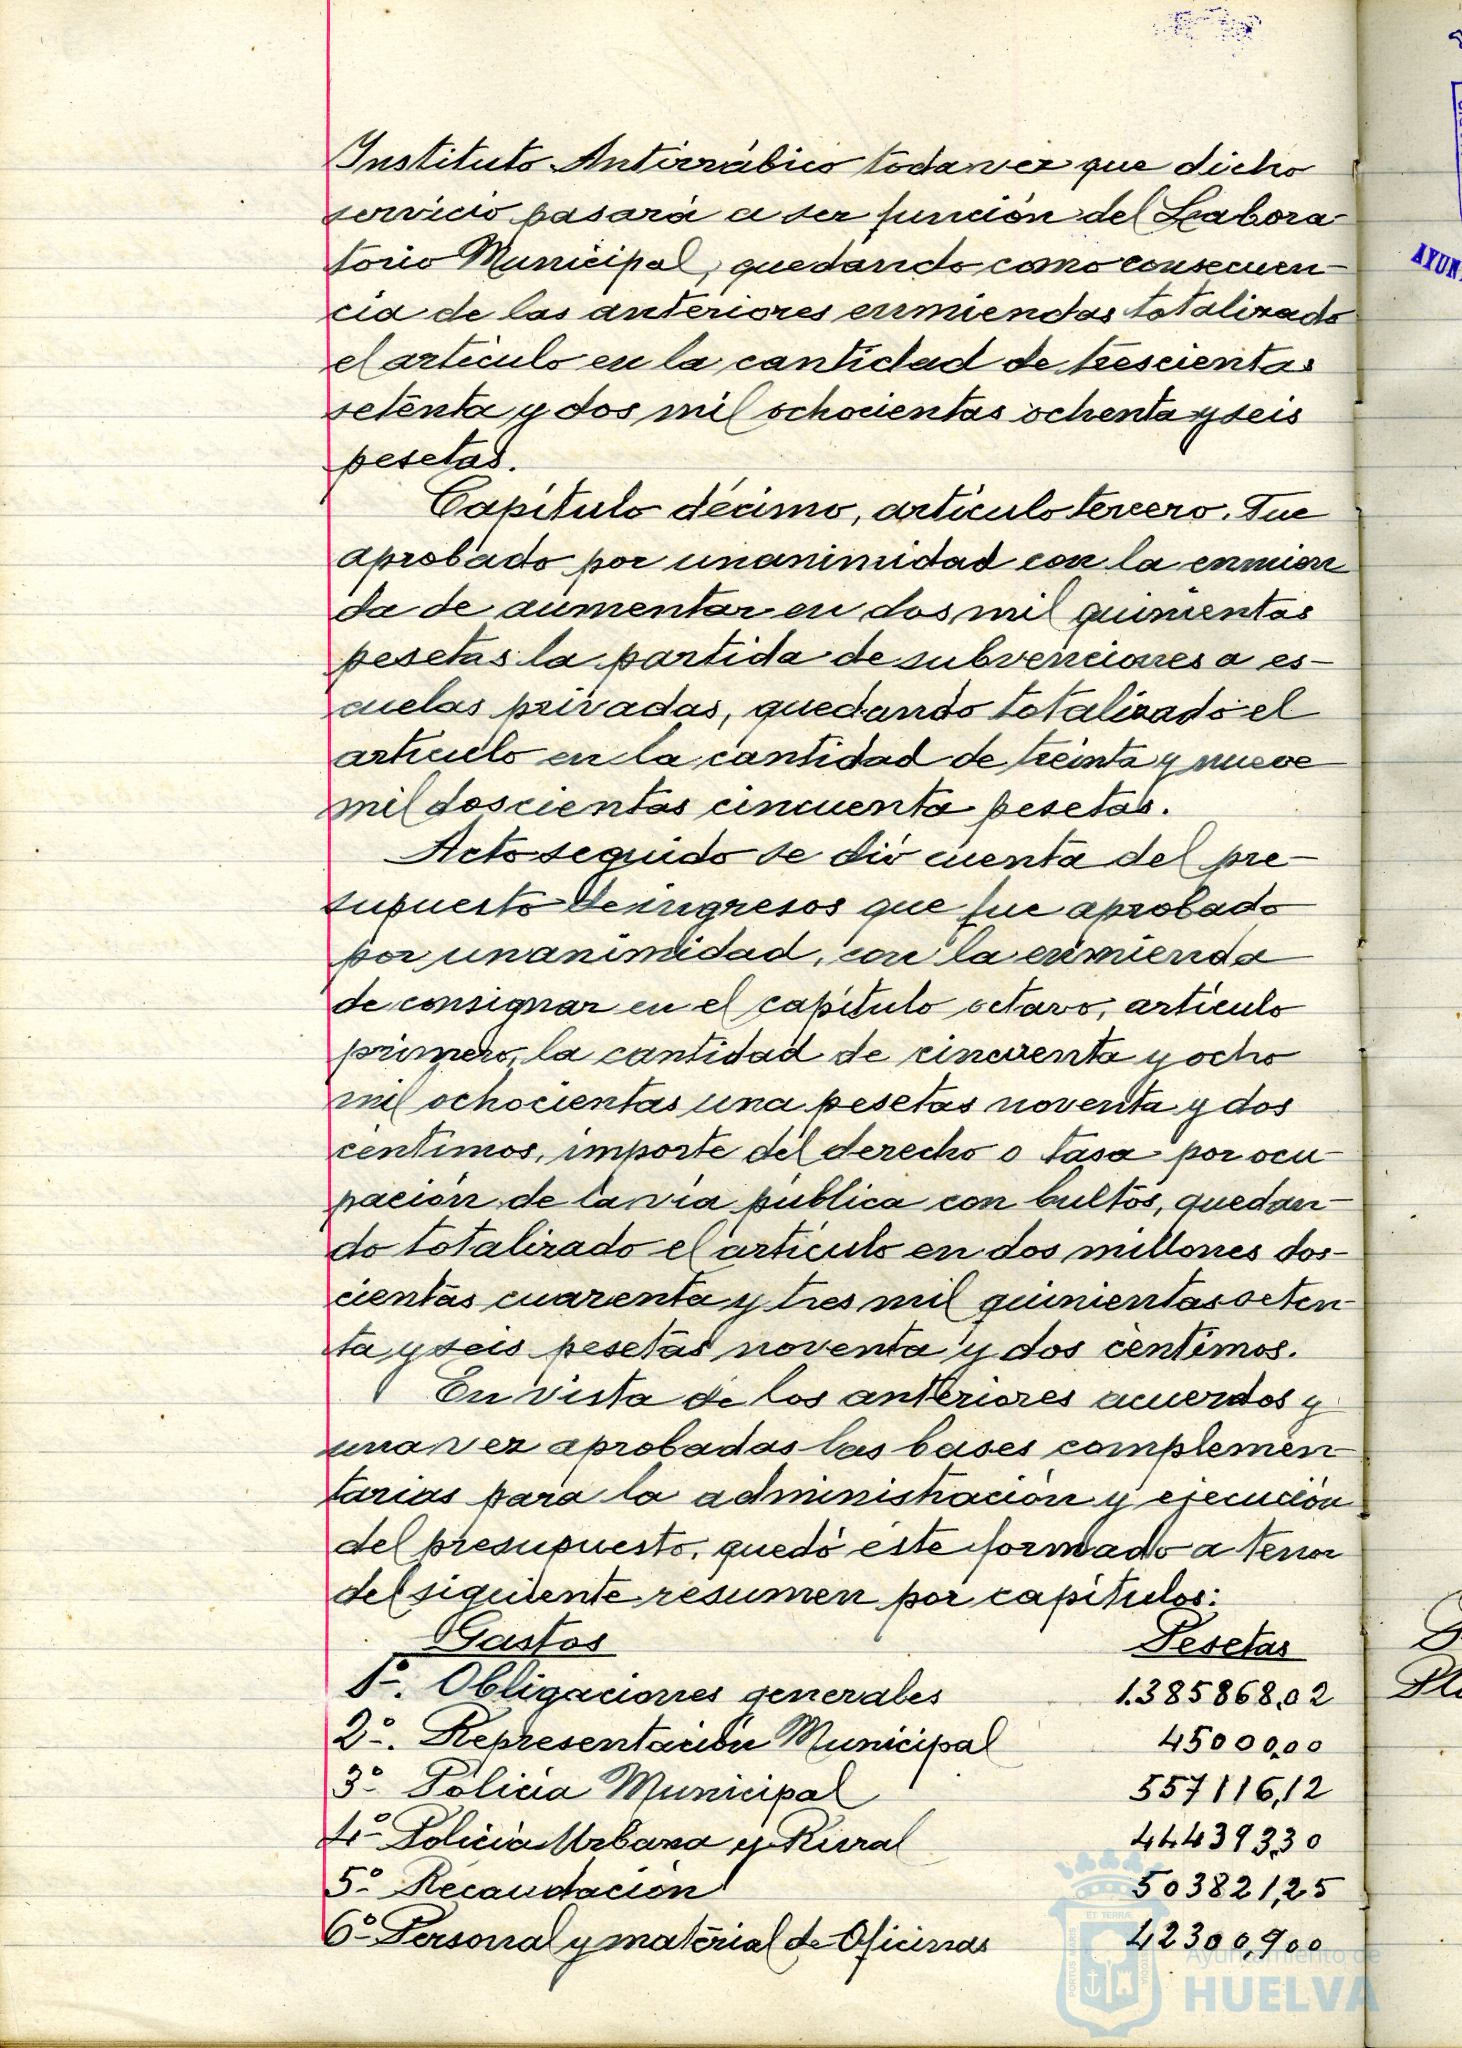 Instituto Antirrábico toda vez que dicho
servicio pasará a ser función del Labora-
torio Municipal, quedando como consecuen-
cia de las anteriores enmiendas totalizado
el artículo en la cantidad de trescientas
setenta y dos mil ochocientas ochenta y seis
pesetas.
Capítulo décimo, artículo tercero. Fue
aprobado por unanimidad con la enmien
da de aumentar en dos mil quinientas
pesetas la partida de subvenciones a es-
cuelas privadas, quedando totalizado el
artículo en la cantidad de treinta y nueve
mil doscientas cincuenta pesetas.
Acto seguido se dió cuenta del pre-
supuesto de ingresos que fue aprobado
por unanimidad, con la enmienda
de consignar en el capítulo octavo, artículo
primero, la cantidad de cincuenta y ocho
mil ochocientas una pesetas noventa y dos
céntimos, importe del derecho o tasa por ocu-
pación de la vía pública con bultos, quedan-
do totalizado el artículo en dos millones dos-
cientas cuarenta y tres mil quinientas seten-
ta y seis pesetas noventa y dos céntimos.
En vista de los anteriores acuerdos y
una vez aprobadas las bases complemen-
tarias para la administración y ejecución
del presupuesto, quedó éste formado a tenor
del siguiente resumen por capítulos:
Gastos Pesetas
1º. Obligaciones generales 1.385868,02
2º. Representación Municipal 45000,00
3º Policía Municipal 557116,12
4º Policía Urbana y Rural 444393,30
5º Recaudación 503821,25
6º Personal y material de Oficinas
Ayuntamiento de
HUELVA